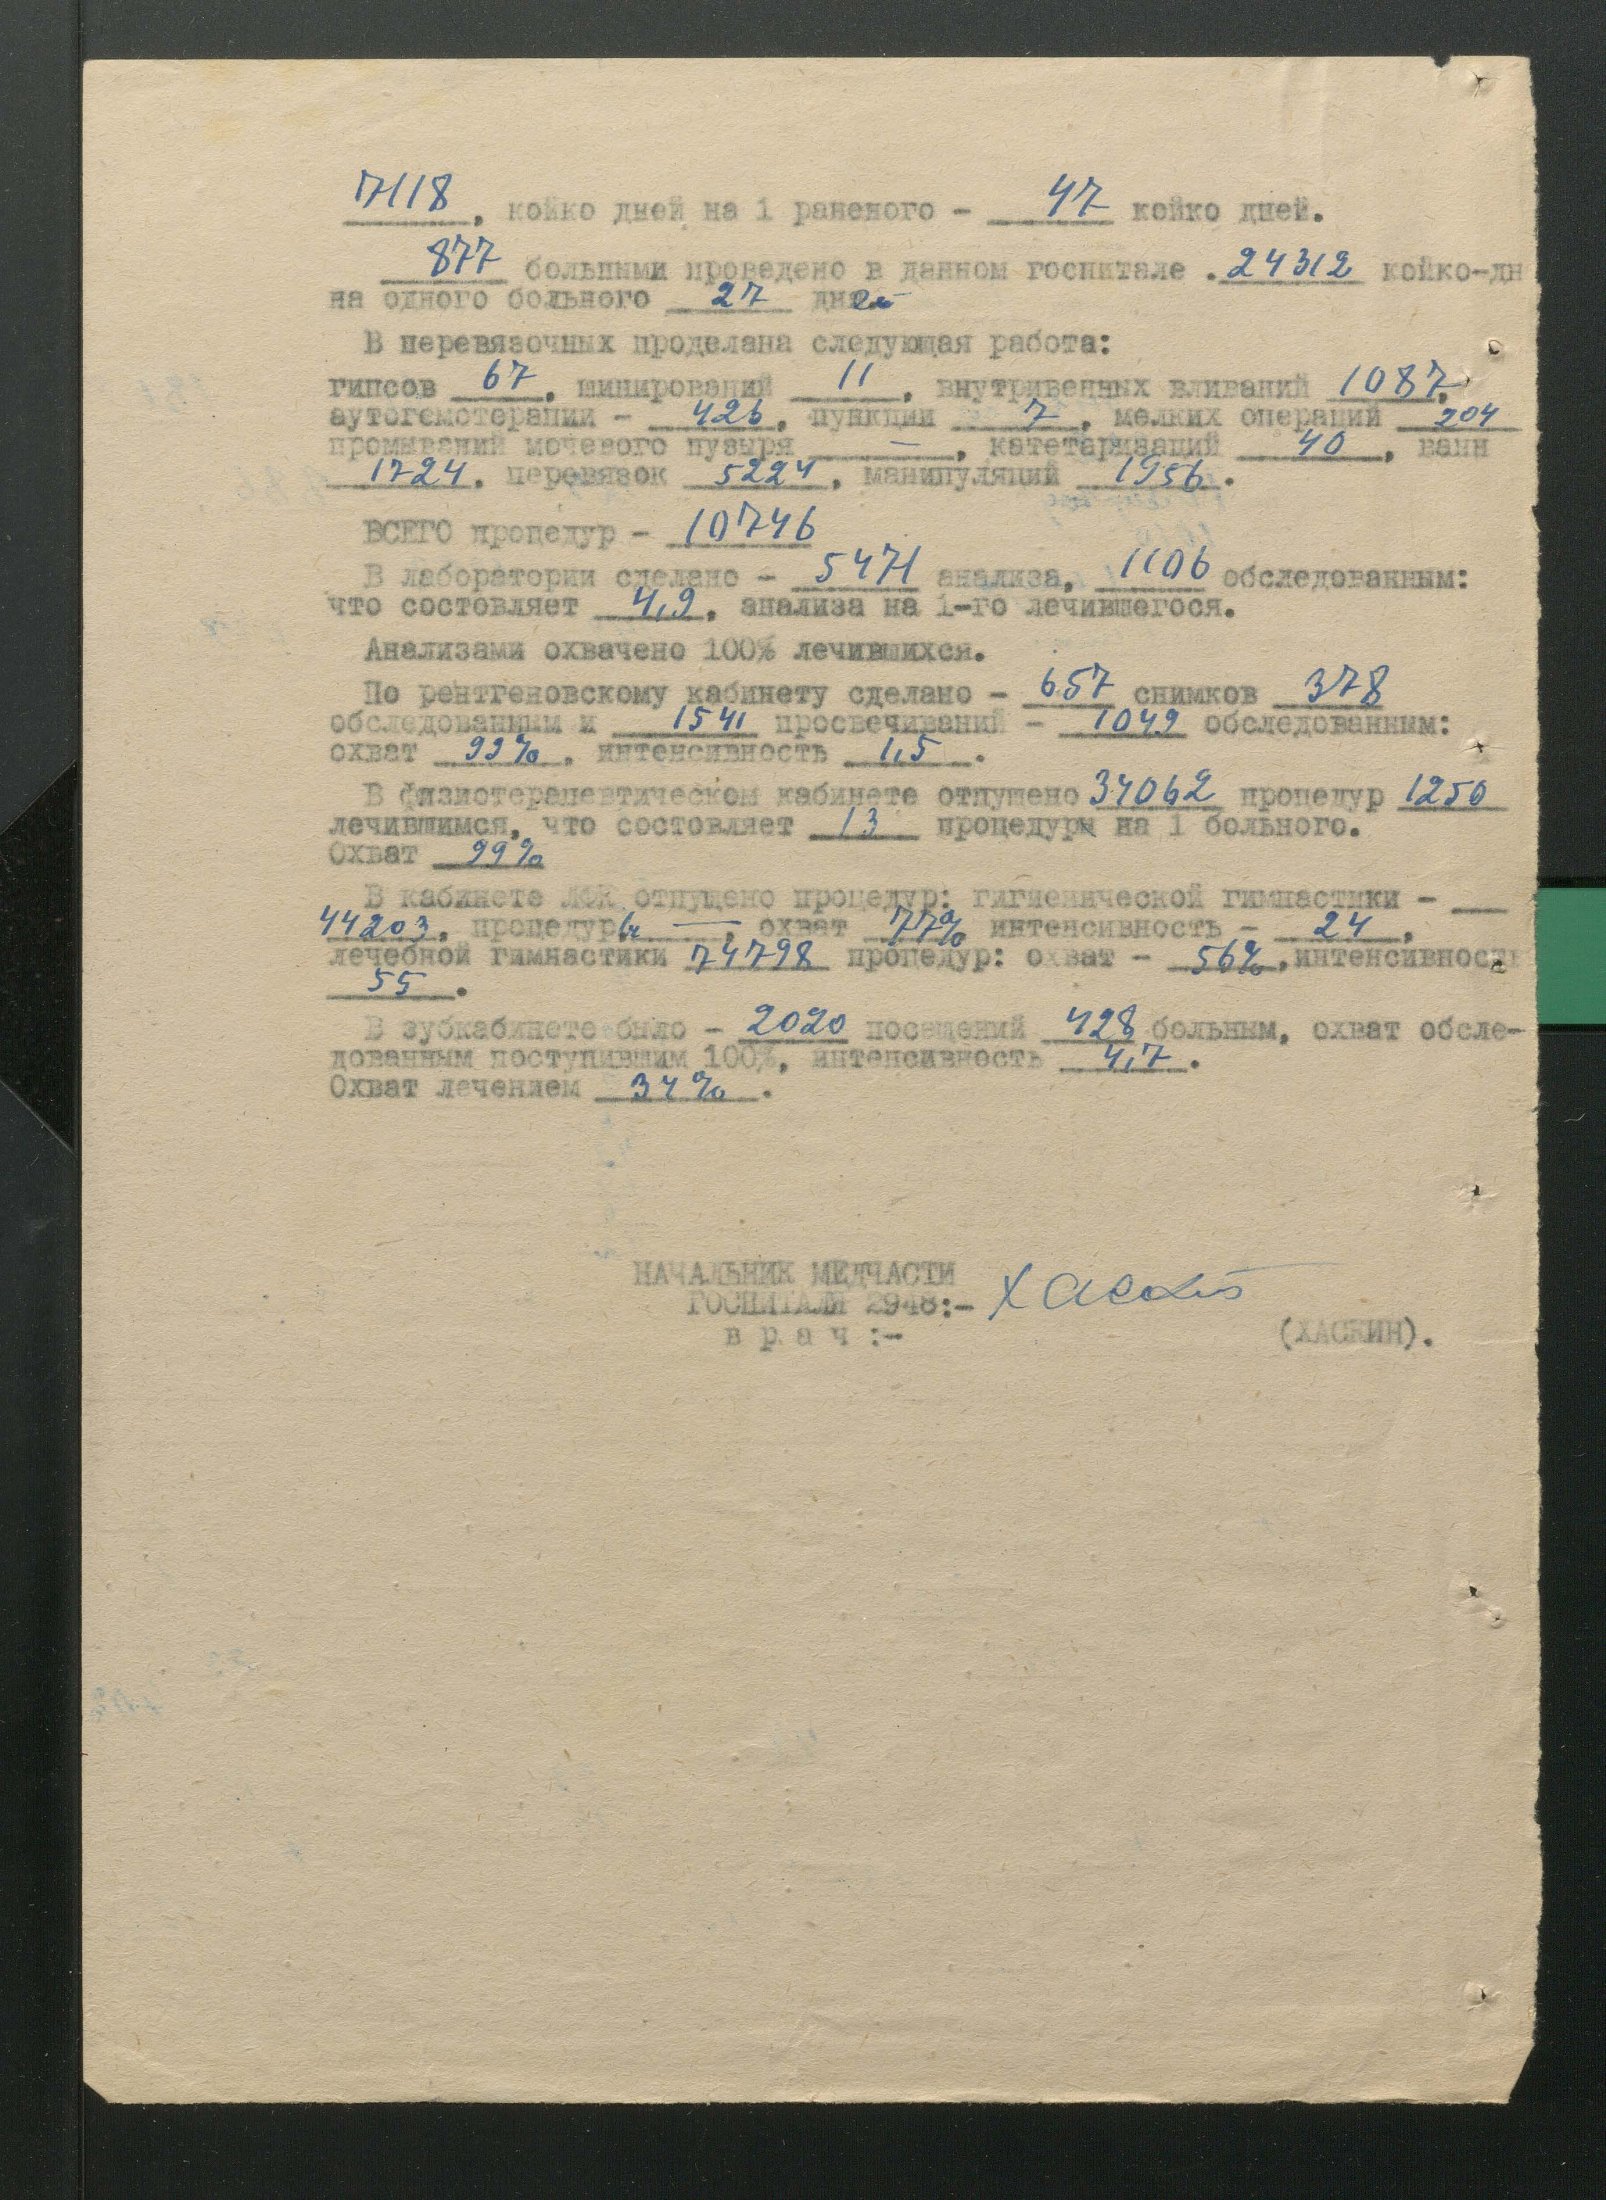 7118, койко дней на 1 раненого - 47 койко дней.
877 больными проведено в данном госпитале .24312 койко-дн
на одного больного 27 дней
В перевязочных проделана следующая работа:
гипсов 67, шинирований 11, внутривенных вливаний 1087,
аутогемотерапии - 426, пункции 7, мелких операций 204
промываний мочевого пузыря —, катетаризаций 40, ванн
1724, перевязок 5224, манипуляций 1956.
ВСЕГО процедур - 10746
В лаборатории сделано - 5471 анализа, 1106 обследованным:
что состовляет 4,9, анализа на 1-го лечившегося.
Анализами охвачено 100% лечившихся.
По рентгеновскому кабинету сделано - 657 снимков 378
обследованным и 1541 просвечиваний - 1049 обследованным:
охват 99%, интенсивность 1,5.
В физиотерапевтическом кабинете отпущено 34062 процедур 1250
лечившимся, что состовляет 13 процедуры на 1 больного.
Охват 99%
В кабинете ЛФК отпущено процедур: гигиенической гимнастики -
44203, процедуры —, охват 77% интенсивность - 24,
лечебной гимнастики 74798 процедур: охват - 56%, интенсивность
55.
В зубкабинете было - 2020 посещений 428 больным, охват обсле-
дованным поступившим 100%, интенсивность 4,7.
Охват лечением 34%.
НАЧАЛЬНИК МЕДЧАСТИ
ГОСПИТАЛЯ 2948:- Хаскин
в р а ч :- (ХАСКИН).